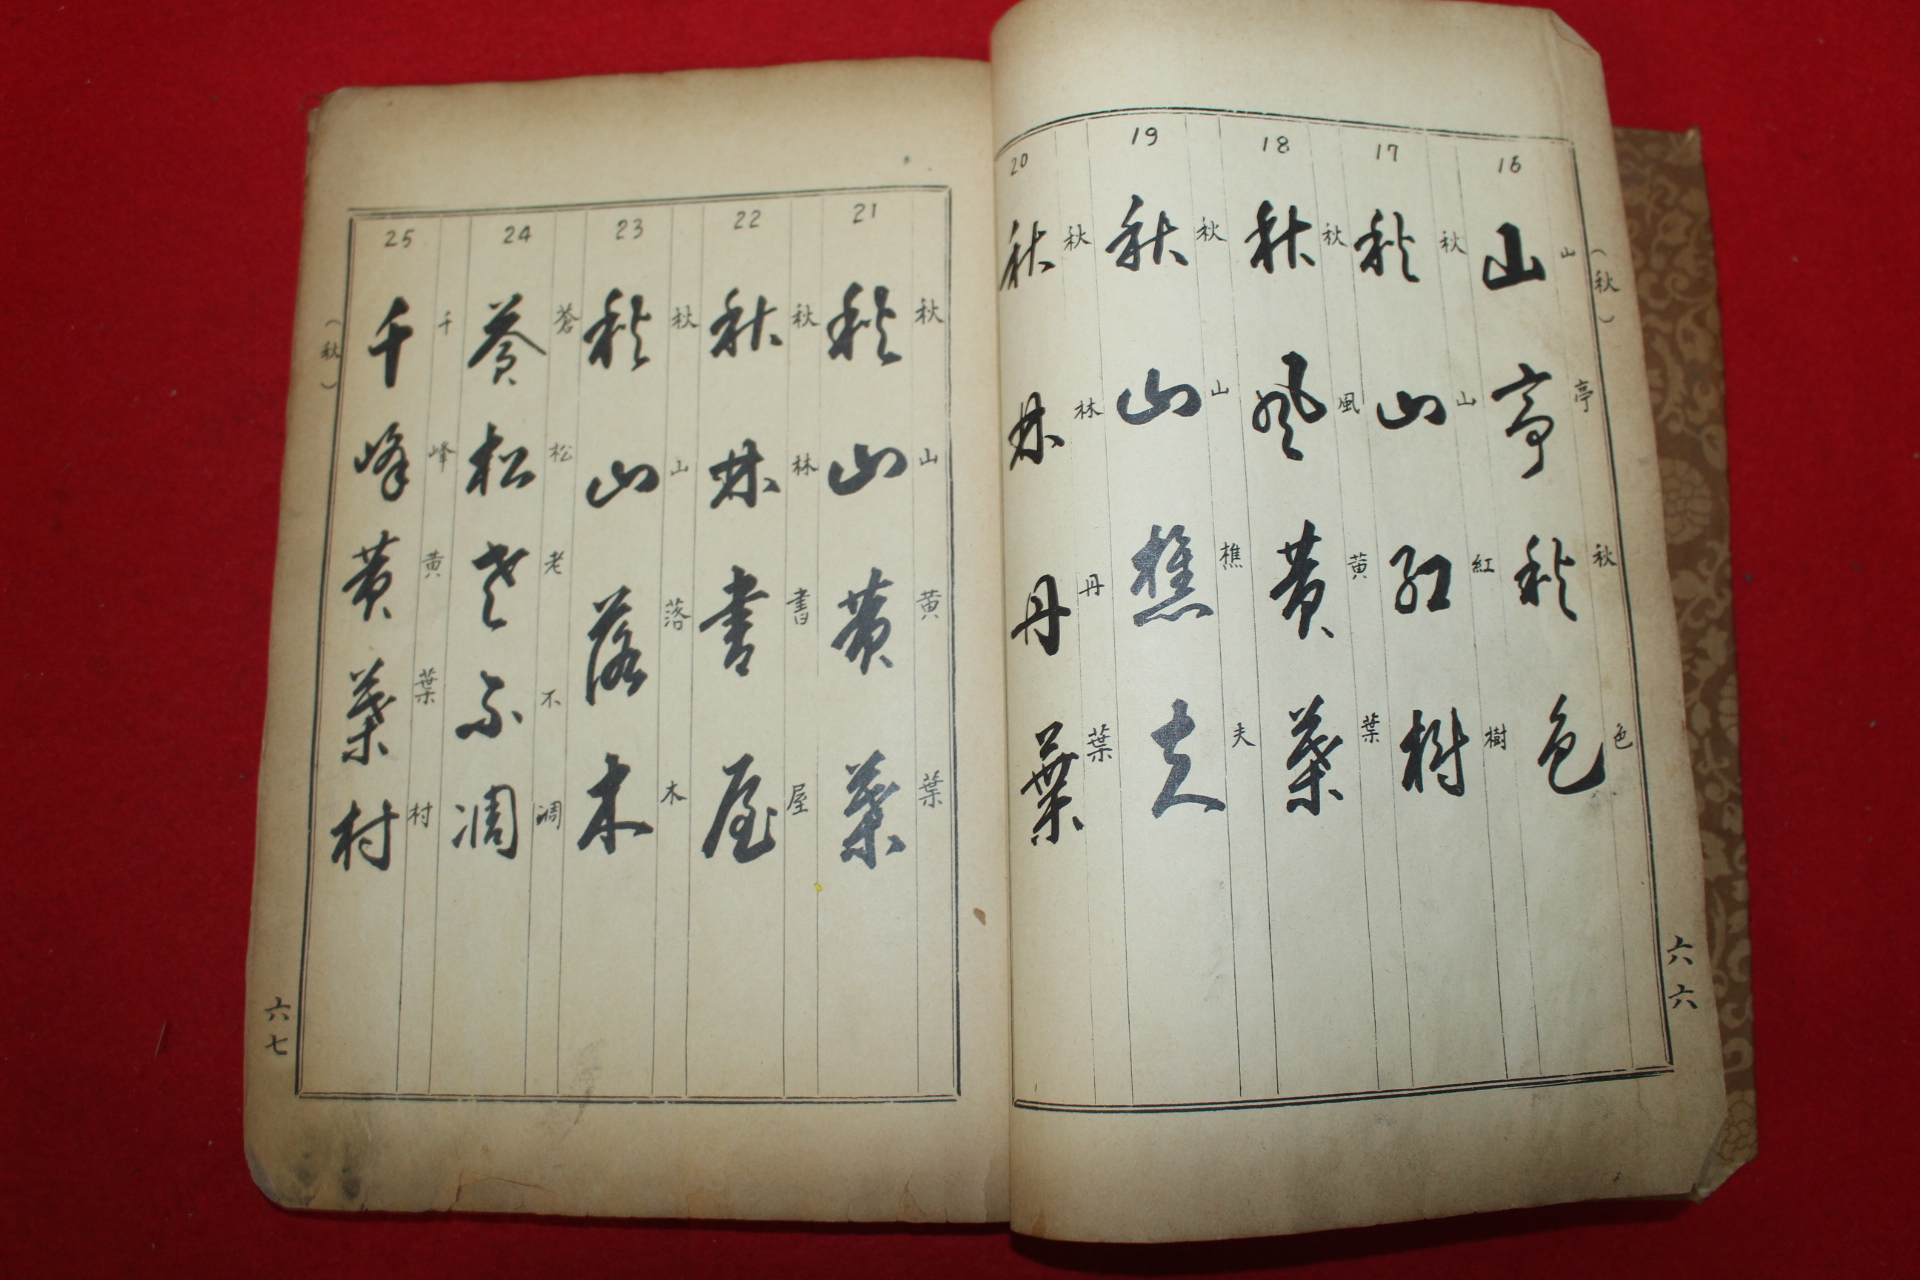 （秋）
16
山亭秋色
山亭秋色
17
秋山紅樹
秋山紅樹
18
秋風黄葉
秋風黄葉
19
秋山樵夫
秋山樵夫
20
秋林丹葉
秋林丹葉
六六
21
秋山黄葉
秋山黄葉
22
秋林書屋
秋林書屋
23
秋山落木
秋山落木
24
蒼松老不凋
蒼松老不凋
25
千峰黄葉村
千峰黄葉村
（秋）
六七